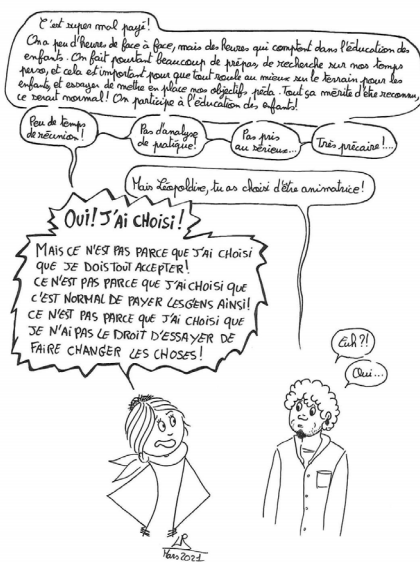 C'est super mal payé!
On a peu d'heures de face à face, mais des heures qui comptent dans l'éducation des
enfants. On fait pourtant beaucoup de prépas, de recherche sur nos temps
perso, et cela est important pour que tout roule au mieux sur le terrain pour les
enfants, et essayer de mettre en place nos objectifs péda. Tout ça mérite d'être reconnu,
ce serait normal! On participe à l'éducation des enfants!
Peu de temps
de réunion!
Pas d'analyse
de pratique!
Pas pris
au sérieux...
Très précaire!...
Mais Léopoldine, tu as choisi d'être animatrice!
OUI! J'AI CHOISI!
MAIS CE N'EST PAS PARCE QUE J'AI CHOISI
QUE JE DOIS TOUT ACCEPTER!
CE N'EST PAS PARCE QUE J'AI CHOISI QUE
C'EST NORMAL DE PAYER LES GENS AINSI!
CE N'EST PAS PARCE QUE J'AI CHOISI QUE
JE N'AI PAS LE DROIT D'ESSAYER DE
FAIRE CHANGER LES CHOSES!
Euh?!
Oui...
LR
Mars 2021